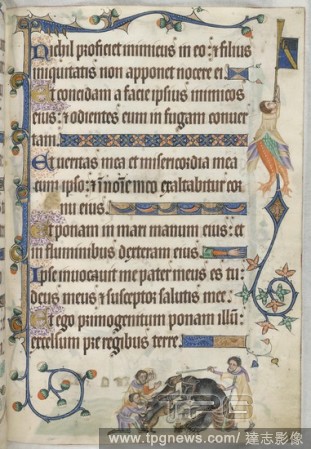 Nichil proficiet inimicus in eo: & filius
iniquitatis non apponet nocere ei
Et concidam a facie ipsius inimicos
eius: & odientes eum in fugam conuer
tam.
Et ueritas mea et misericordia mea
cum ipso: & in noīe meo exaltabitur cor
nu eius.
Et ponam in mari manum eius: et
in fluminibus dexteram eius.
Ipse inuocauit me pater meus es tu:
deus meus & susceptor salutis mee.
Et ego primogenitum ponam illū:
excelsum pre regibus terre.
TPG
www.tpgnews.com/ 達志影像